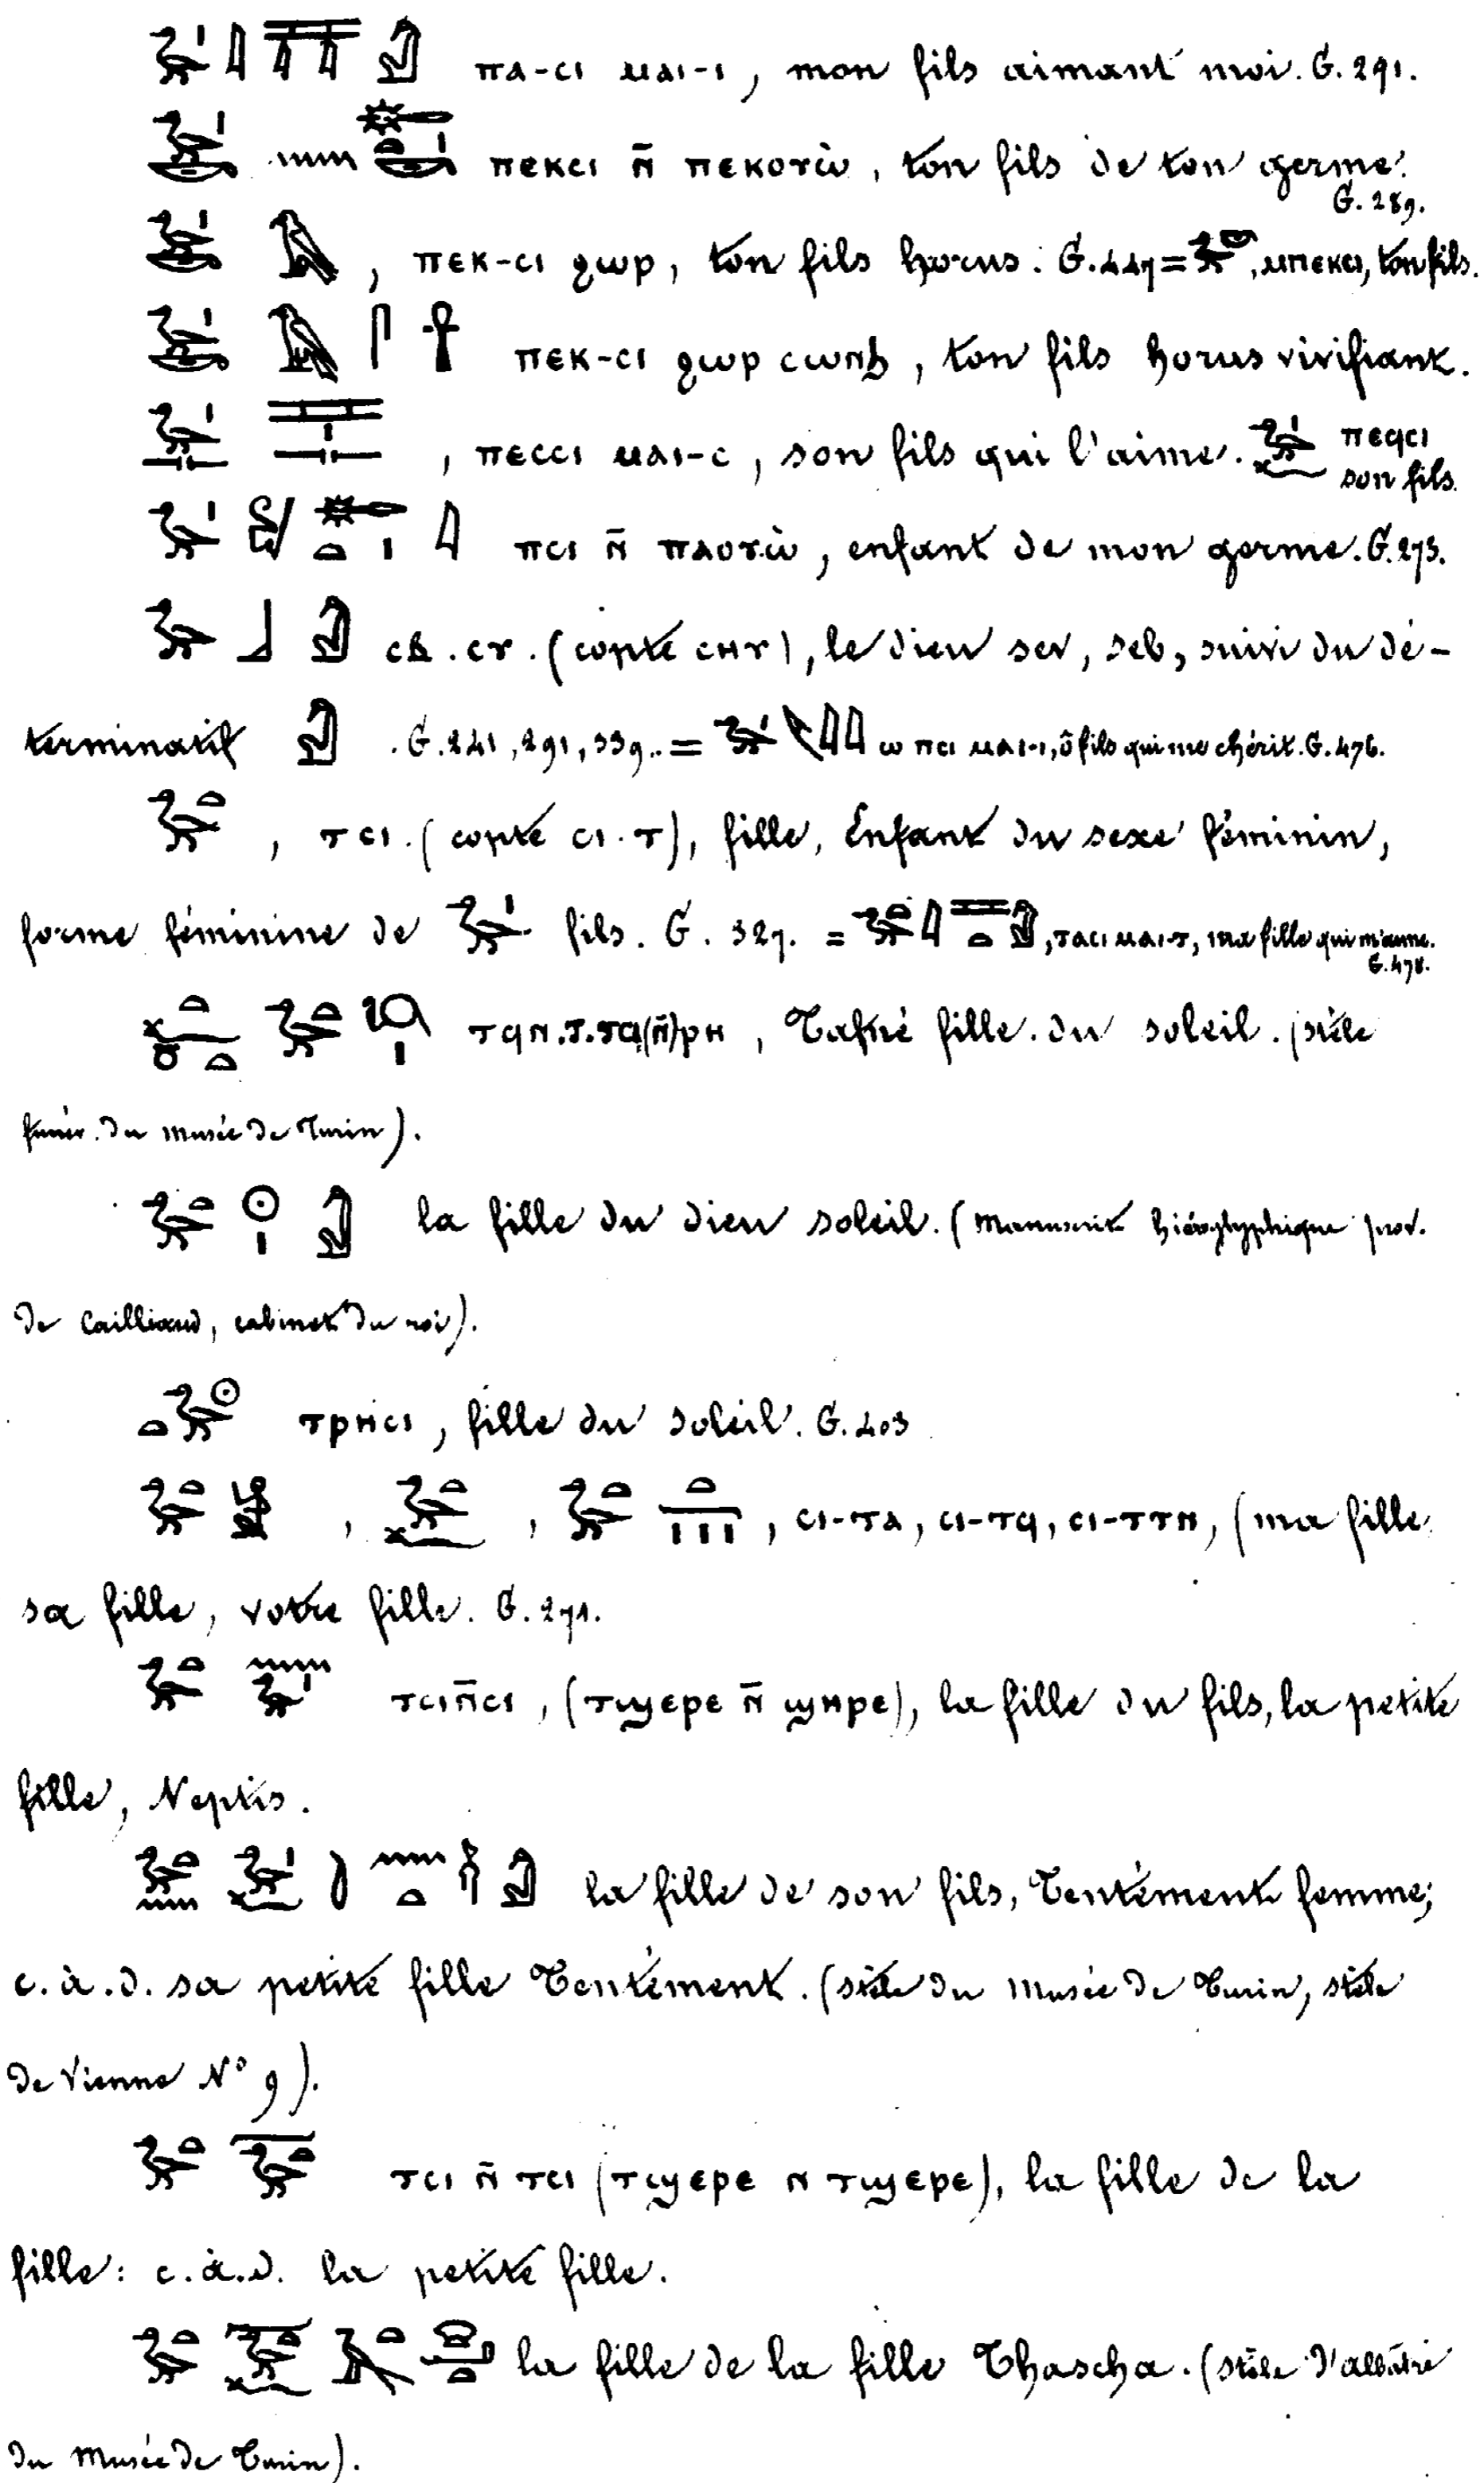 ⲡⲁ-ⲥⲓ ⲙⲁⲓ-ⲓ, mon fils aimant moi. G. 291.
ⲡⲉⲕⲥⲓ ⲛ̄ ⲡⲉⲕⲟⲩⲱ̀, ton fils de ton germe.
G. 289.
, ⲡⲉⲕ-ⲥⲓ ϩⲱⲣ, ton fils horus. G. 447 = , ⲙⲡⲉⲕⲥⲓ, ton fils.
ⲡⲉⲕ-ⲥⲓ ϩⲱⲣ ⲥⲱⲛϧ, ton fils horus vivifiant.
, ⲡⲉⲥⲥⲓ ⲙⲁⲓ-ⲥ, son fils qui l'aime. ⲡⲉϥⲥⲓ
son fils.
ⲡⲥⲓ ⲛ̄ ⲡⲁⲟⲩⲱ̀, enfant de mon germe. G. 273.
ⲥⲃ. ⲥⲩ. (copte ⲥⲏⲩ), le dieu sev, seb, suivi du dé-
terminatif . G. 241, 291, 339. = ⲱ ⲡⲥⲓ ⲙⲁⲓ-ⲓ, ô fils qui me chérit. G. 476.
, ⲧⲥⲓ. (copte ⲥⲓ.ⲧ), fille, Enfant du sexe féminin,
forme féminine de fils. G. 327. = , ⲧⲁⲥⲓ ⲙⲁⲓ-ⲧ, ma fille qui m'aime.
G. 478.
ⲧϥⲛ.ⲧ. ⲧⲥⲓ(ⲛ̄)ⲣⲏ, Tafné fille du soleil. (stèle
funér. du musée de Turin).
la fille du dieu soleil. (Manuscrit hiéroglyphique prov.
de Cailliaud, cabinet du roi).
ⲧⲣⲏⲥⲓ, fille du soleil. G. 403
, , , ⲥⲓ-ⲧⲁ, ⲥⲓ-ⲧϥ, ⲥⲓ-ⲧⲧⲛ, (ma fille
sa fille, votre fille. G. 271.
ⲧⲥⲓⲛ̄ⲥⲓ, (ⲧϣⲉⲣⲉ ⲛ̄ ϣⲏⲣⲉ), la fille du fils, la petite
fille, Neptis.
la fille de son fils, Tentèment femme;
c. à. d. sa petite fille Tentèment. (stèle du Musée de Turin, stèle
de Vienne N° 9).
ⲧⲥⲓ ⲛ̄ ⲧⲥⲓ (ⲧϣⲉⲣⲉ ⲛ ⲧϣⲉⲣⲉ), la fille de la
fille: c. à. d. la petite fille.
la fille de la fille Thascha. (stèle d'albâtre
du Musée de Turin).